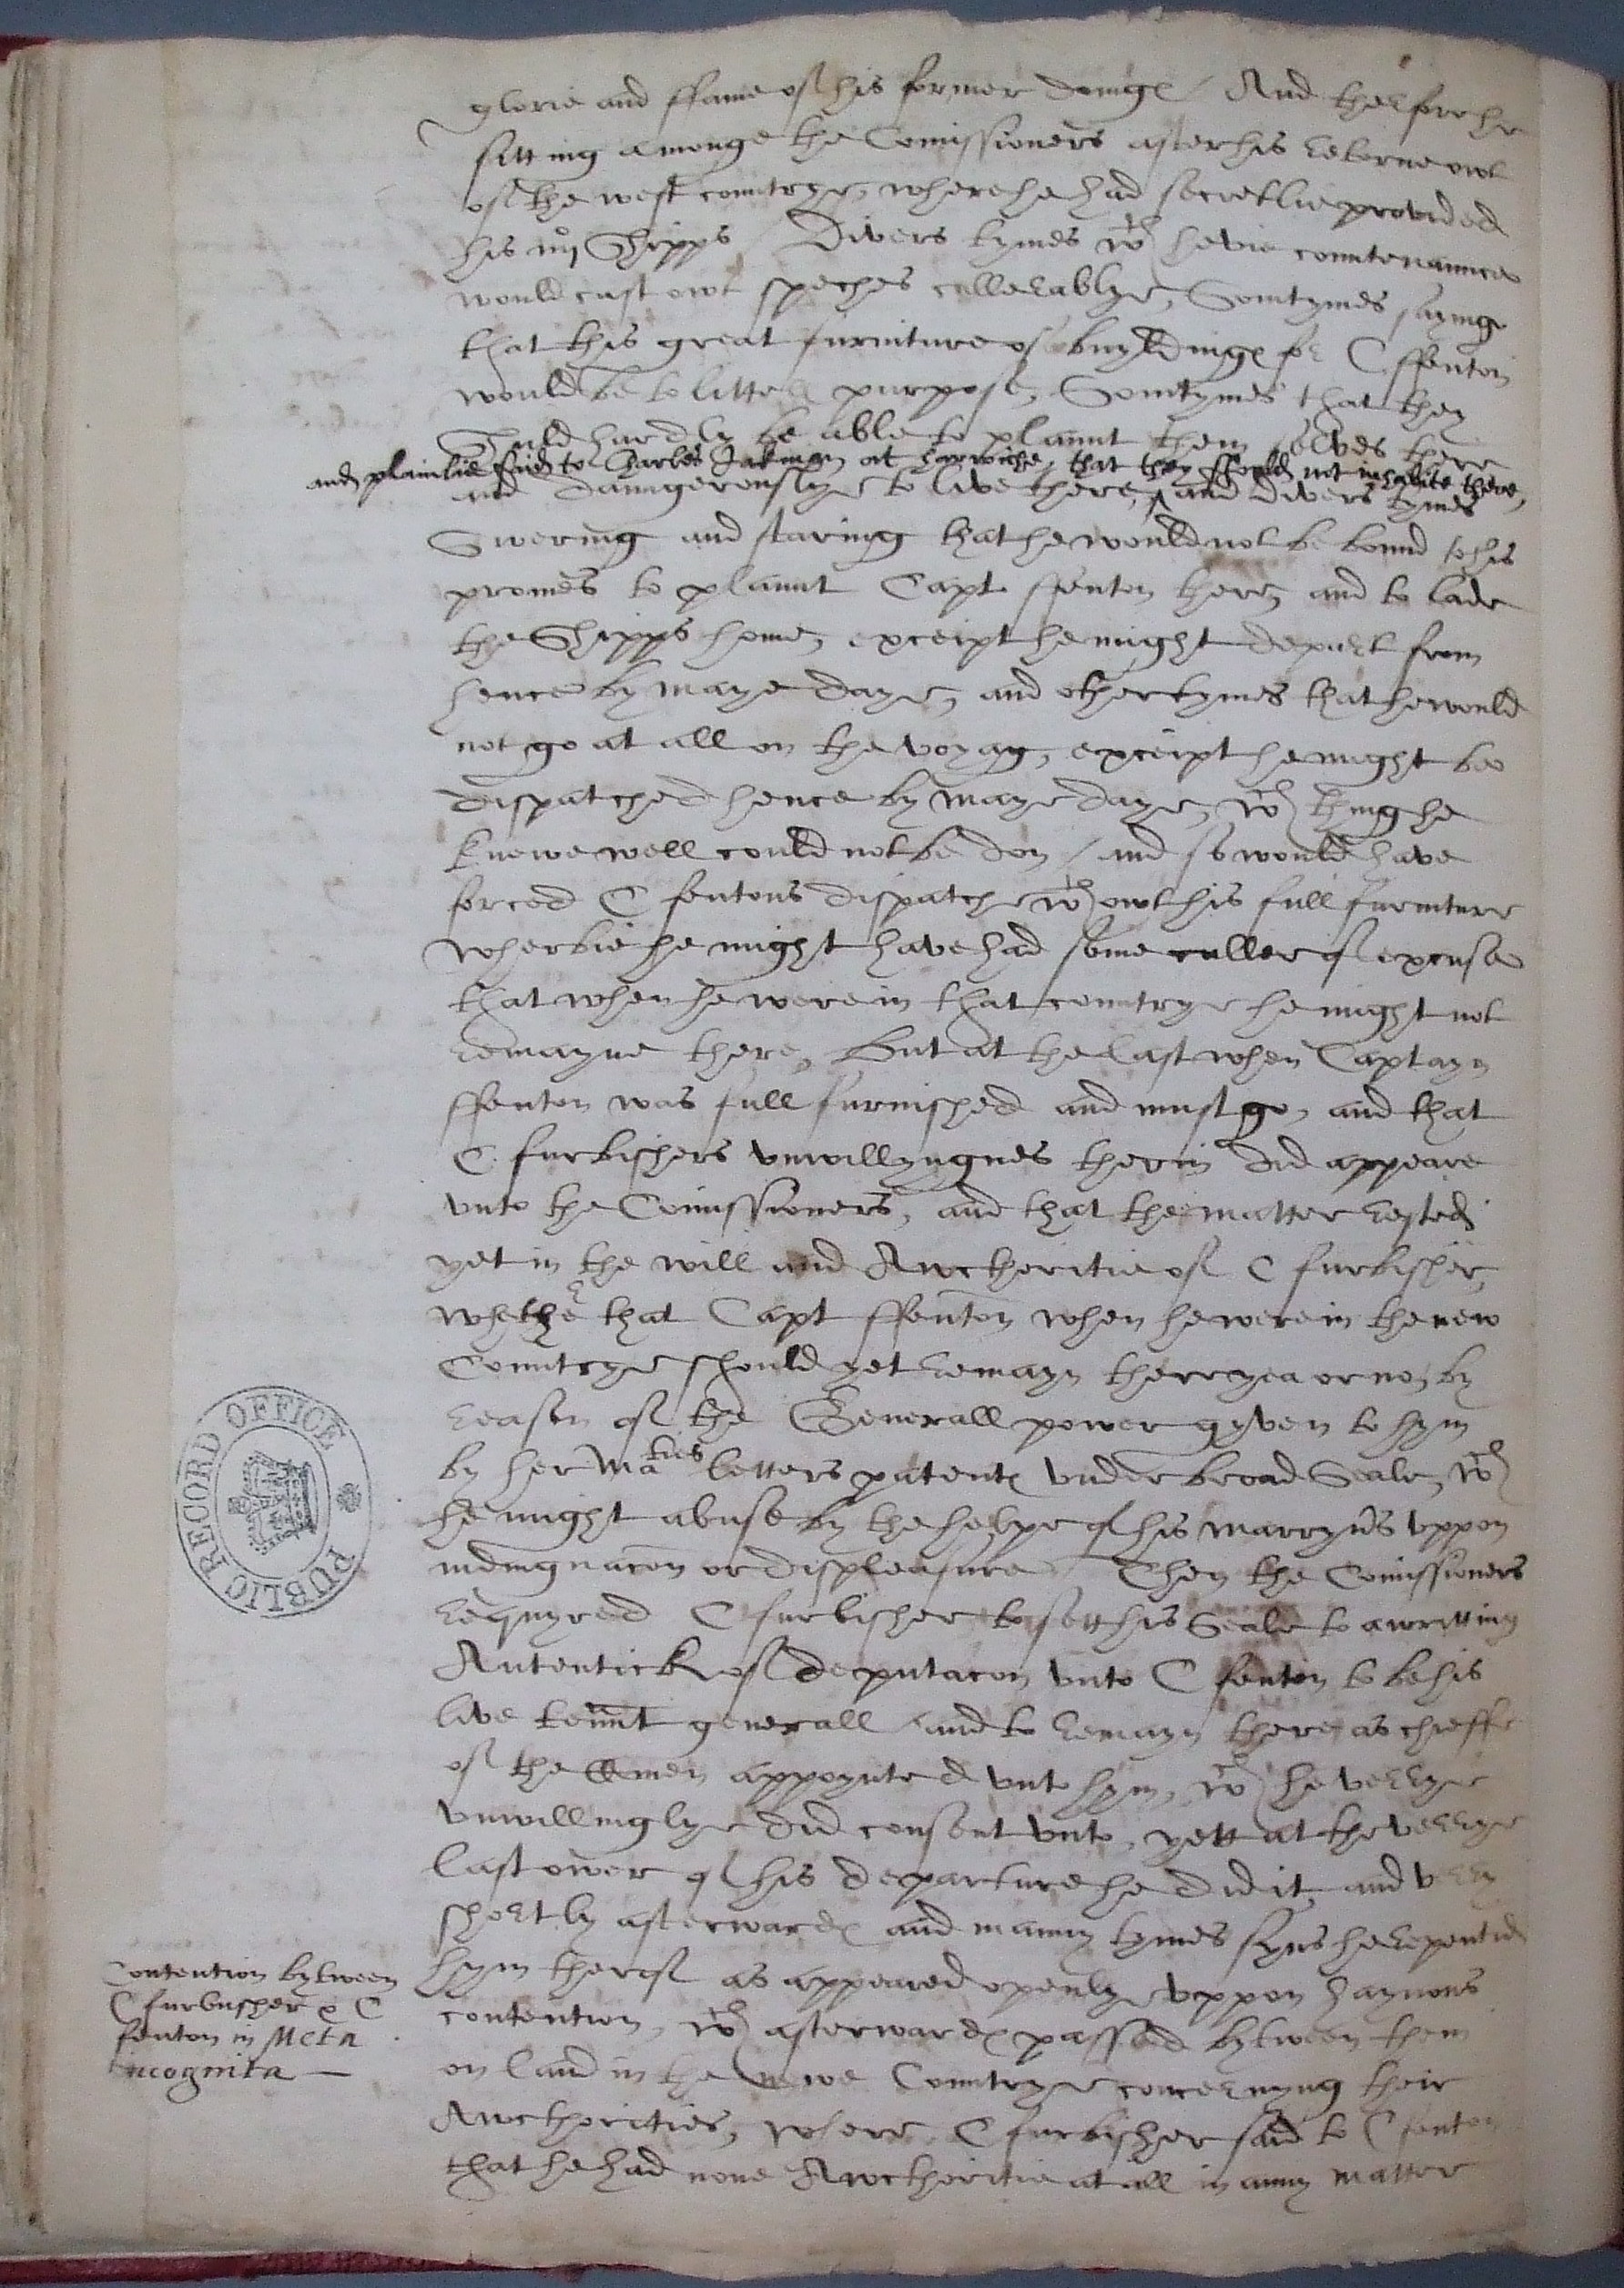 glorie and ffame of his former doinges / And therfore he
sitting amonge the Comissioners after his retorne owt
of the west countrye, where he had secretlie provided
his iiij Shipps / Divers tymes wth hevie countenaunce
would cast owt speches cullerablye, Somtymes sayinge
that this great furniture of buyldinges for C. ffenton
would be to littell purpose, Somtymes that they
Shuld hardly be able to plannt them selves there
and plainlie said to Charles Jakman at harwiche, that they should not inhabite there,
and daungerouslye to live there, ^ and divers tymes
Swering and staring that he would not be bound to his
promes to plannt Capt. ffenton there, and to lade
the Shipps home, exceipt he might depart from
hence by maye daye, and other tymes that he would
not go at all on the voyag, exceipt he might be
dispatched hence by maye daye, wch thing he
knewe well could not be don / and so would have
forced C fentons dispatche wthowt his full furniture
wherbie he might have had some culler of excuse
that when he were in that countrye he might not
remayne there, But at the last when Captayn
ffenton was full furnished and must go, and that
C. furbishers unwillyngnes therin did appeare
unto the Comissioners, and that the matter rested
yet in the will and Awcthoritie of C furbisher,
whether that Capt ffenton when he were in the new
Countrye should yet remayn there yea or no, by
reason of the Generall power gyven to hym
by her Maties letters patentes under broad Seale, wch
he might abuse by the helpe of his marryners uppon
indingnacon or displeasure Then the Comissioners
requyred C furbisher to sett his Seale to a writting
Autentick of deputacon unto C fenton to be his
livetennt generall and to remayn there as chieffe
of the C men appoynted unto hym, wch he verrye
unwillinglye did consent unto, yett at the verrye
last ower of his departure he did it, and very
shortly afterwardes and manny tymes syns he repented
hym therof as appeared openlye uppon haynous
contention, wch afterwardes passed bytween them
on land in the newe Countrye concernyng their
Awcthorities, where C furbisher said to C fenton
that he had none Awcthoritie at all in anny matter
Contention bytween
C furbusher & C
fenton in Meta
incognita —
PUBLIC RECORD OFFICE